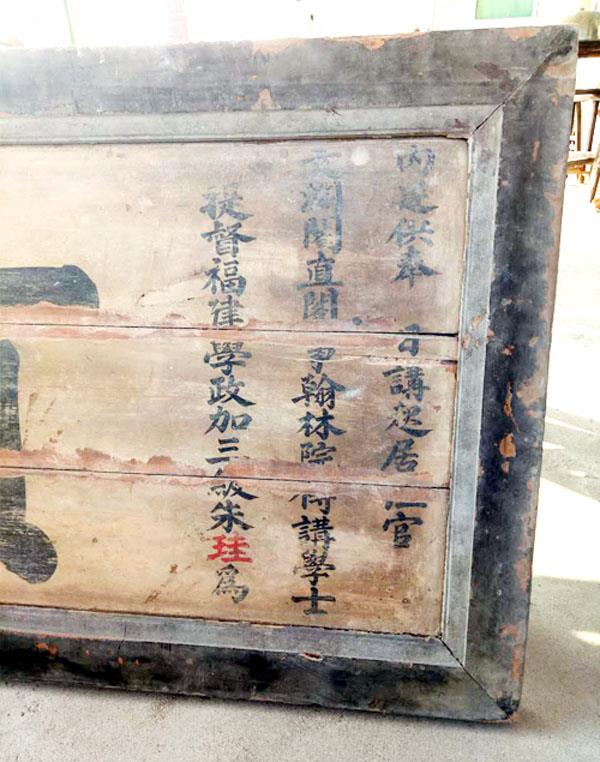 內廷供奉日講起居注官
文淵閣直閣事翰林院侍講學士
提督福建學政加三級朱珪為